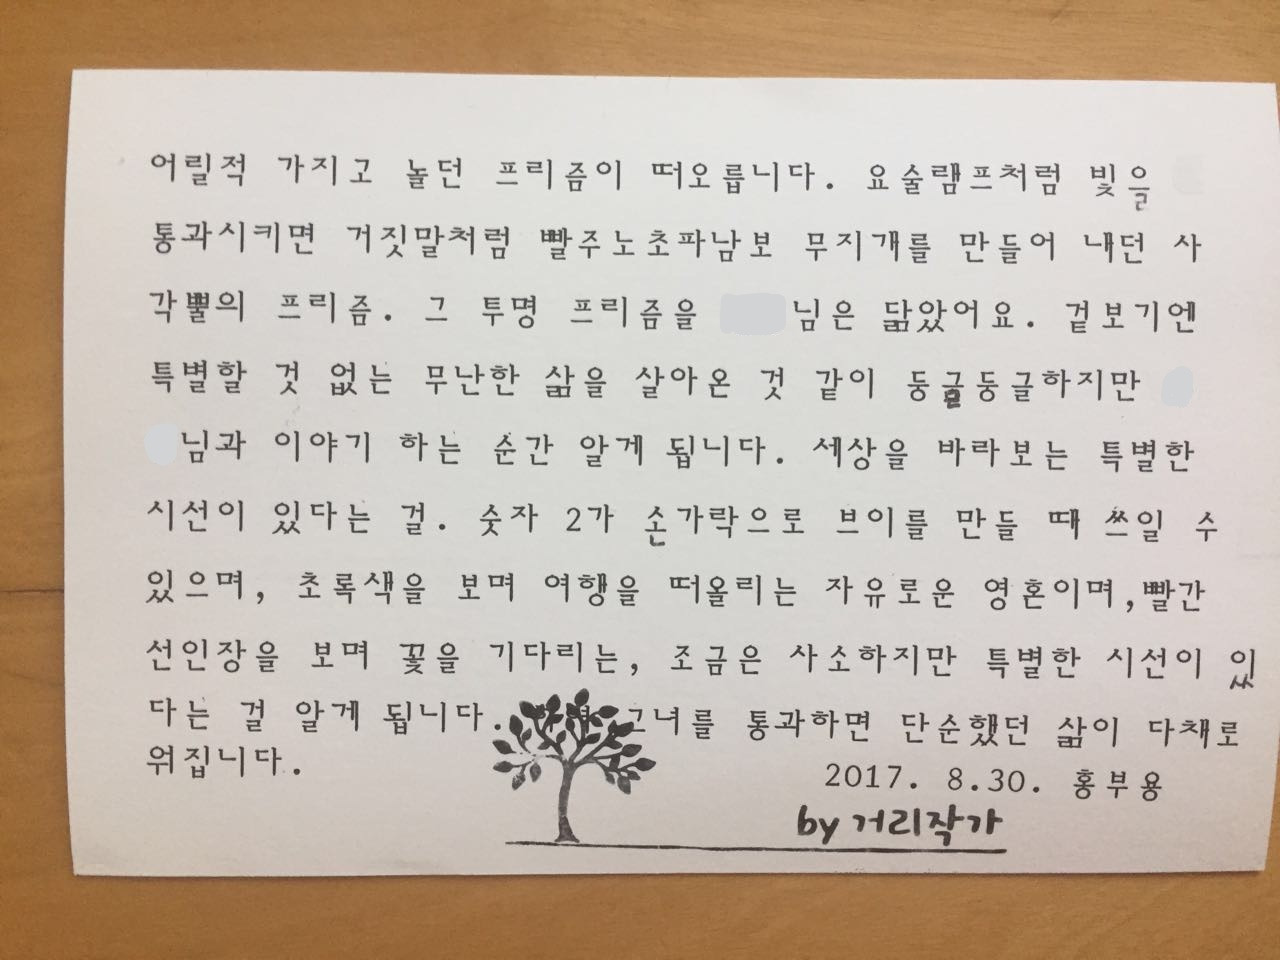 어릴적 가지고 놀던 프리즘이 떠오릅니다. 요술램프처럼 빛을
통과시키면 거짓말처럼 빨주노초파남보 무지개를 만들어 내던 사
각뿔의 프리즘. 그 투명 프리즘을 님은 닮았어요. 겉보기엔
특별할 것 없는 무난한 삶을 살아온 것 같이 둥글둥글하지만
님과 이야기 하는 순간 알게 됩니다. 세상을 바라보는 특별한
시선이 있다는 걸. 숫자 2가 손가락으로 브이를 만들 때 쓰일 수
있으며, 초록색을 보며 여행을 떠올리는 자유로운 영혼이며,빨간
선인장을 보며 꽃을 기다리는, 조금은 사소하지만 특별한 시선이 있
다는 걸 알게 됩니다. 그녀를 통과하면 단순했던 삶이 다채로
워집니다.
2017. 8.30. 홍부용
by 거리작가